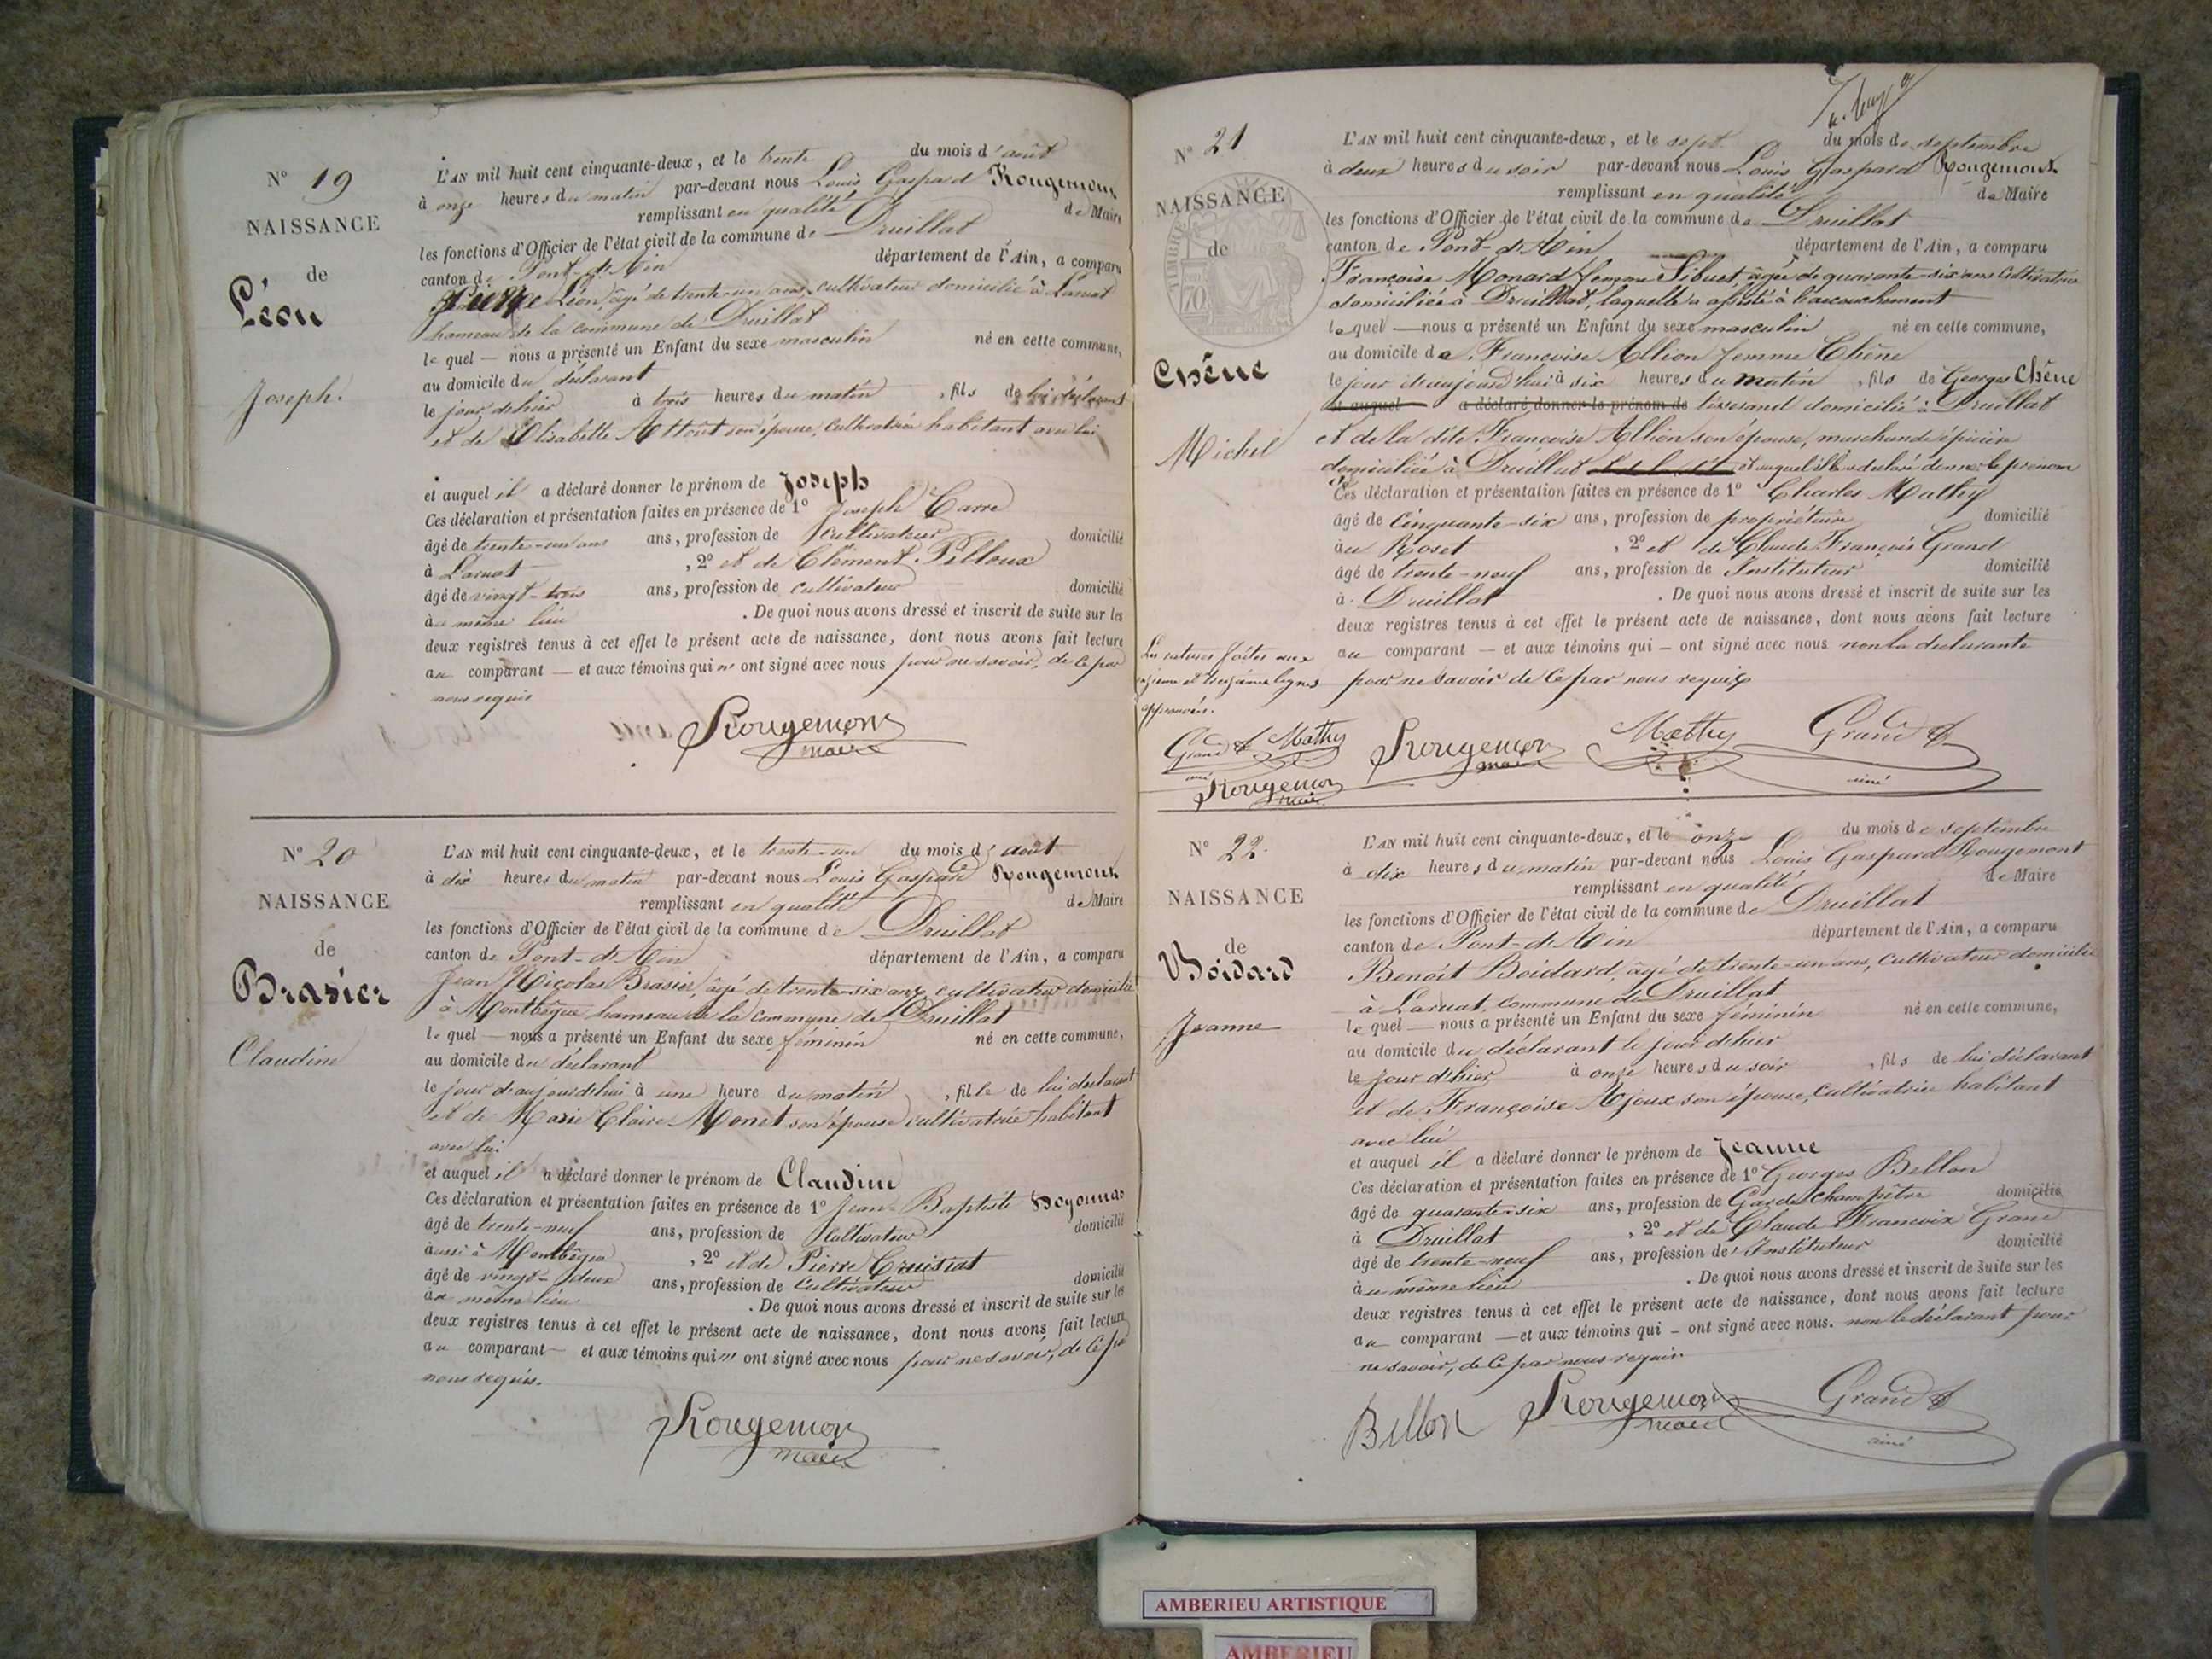 N° 19
NAISSANCE
de
Léon
Joseph.
L'AN mil huit cent cinquante-deux, et le trente du mois d'août
à onze heures du matin par-devant nous Louis Gaspard Rougemont
remplissant en qualité de Maire
les fonctions d'Officier de l'état civil de la commune de Druillat
canton de Pont-d'Ain département de l'Ain, a comparu
Léon, âgé de trente-un ans, cultivateur domicilié à
hameau de la commune de Druillat
le quel — nous a présenté un Enfant du sexe masculin né en cette commune,
au domicile du déclarant
le jour d'hier à trois heures du matin, fils de lui déclarant
et de Elisabette son épouse, cultivatrice habitant avec lui
et auquel il a déclaré donner le prénom de Joseph
Ces déclaration et présentation faites en présence de 1° Joseph Carre
âgé de trente-un ans ans, profession de Cultivateur domicilié
à , 2° et de Clément Pelloux
âgé de vingt-trois ans, profession de cultivateur domicilié
au même lieu . De quoi nous avons dressé et inscrit de suite sur les
deux registres tenus à cet effet le présent acte de naissance, dont nous avons fait lecture
au comparant — et aux témoins qui n' ont signé avec nous pour ne savoir, de ce par
nous requis
Rougemont
maire
N° 20
NAISSANCE
de
Brasier
Claudine
L'AN mil huit cent cinquante-deux, et le trente-un du mois d' août
à dix heures du matin par-devant nous Louis Gaspard Rougemont
remplissant en qualité de Maire
les fonctions d'Officier de l'état civil de la commune de Druillat
canton de Pont-d'Ain département de l'Ain, a comparu
Jean Nicolas Brasier, âgé de trente-six ans, cultivateur domicilié
à hameau de la commune de Druillat
le quel — nous a présenté un Enfant du sexe féminin né en cette commune,
au domicile du déclarant
le jour d'aujourd'hui à une heure du matin, fille de lui déclarant
et de Marie Claire Monet son épouse cultivatrice habitant
avec lui
et auquel il a déclaré donner le prénom de Claudine
Ces déclaration et présentation faites en présence de 1° Jean-Baptiste
âgé de trente-neuf ans, profession de Cultivateur domicilié
aussi à , 2° et de Pierre Cruisiat
âgé de vingt-deux ans, profession de Cultivateur domicilié
au même lieu . De quoi nous avons dressé et inscrit de suite sur les
deux registres tenus à cet effet le présent acte de naissance, dont nous avons fait lecture
au comparant — et aux témoins qui n' ont signé avec nous pour ne savoir, de ce par
nous requis.
Rougemont
maire
N° 21
NAISSANCE
de
Chêne
Michel
L'AN mil huit cent cinquante-deux, et le sept du mois de septembre
à deux heures du soir par-devant nous Louis Gaspard Rougemont
remplissant en qualité de Maire
les fonctions d'Officier de l'état civil de la commune de Druillat
canton de Pont-d'Ain département de l'Ain, a comparu
Françoise Monard femme Sibuet, âgée de quarante-six ans Cultivatrice
domiciliée à Druillat, laquelle a assisté à l'accouchement
lequel — nous a présenté un Enfant du sexe masculin né en cette commune,
au domicile de Françoise Allion femme Chêne
le jour d'aujourd'hui à six heures du matin, fils de Georges Chêne
et auquel a déclaré donner le prénom de tisserand domicilié à Druillat
et de la dite Françoise Allion son épouse, marchande épicière
domiciliée à Druillat et auquel elle a déclaré donner le prénom
Ces déclaration et présentation faites en présence de 1° Charles Mathy
âgé de Cinquante-six ans, profession de propriétaire domicilié
au Roset , 2° et de Claude François Grand
âgé de trente-neuf ans, profession de Instituteur domicilié
à Druillat . De quoi nous avons dressé et inscrit de suite sur les
deux registres tenus à cet effet le présent acte de naissance, dont nous avons fait lecture
au comparant — et aux témoins qui — ont signé avec nous non la déclarante
pour ne savoir de ce par nous requis
Les ratures faites aux
onzième et treizième lignes
approuvées.
Grand Mathy
Rougemont
maire
Rougemont
maire
Mathy
Grand
ainé
N° 22.
NAISSANCE
de
Boidard
Jeanne
L'AN mil huit cent cinquante-deux, et le onze du mois de septembre
à dix heures du matin par-devant nous Louis Gaspard Rougemont
remplissant en qualité de Maire
les fonctions d'Officier de l'état civil de la commune de Druillat
canton de Pont-d'Ain département de l'Ain, a comparu
Benoit Boidard, âgé de trente-un ans, cultivateur domicilié
à commune de Druillat
le quel — nous a présenté un Enfant du sexe féminin né en cette commune,
au domicile du déclarant le jour d'hier
le jour d'hier à onze heures du soir, fils de lui déclarant
et de Françoise son épouse, cultivatrice habitant
avec lui
et auquel il a déclaré donner le prénom de Jeanne
Ces déclaration et présentation faites en présence de 1° Georges Bellon
âgé de quarante-six ans, profession de Garde champêtre domicilié
à Druillat , 2° et de Claude François Grand
âgé de trente-neuf ans, profession de Instituteur domicilié
au même lieu . De quoi nous avons dressé et inscrit de suite sur les
deux registres tenus à cet effet le présent acte de naissance, dont nous avons fait lecture
au comparant — et aux témoins qui — ont signé avec nous. non le déclarant pour
ne savoir, de ce par nous requis.
Bellon
Rougemont
maire
Grand
ainé
AMBERIEU ARTISTIQUE
AMBERIEU